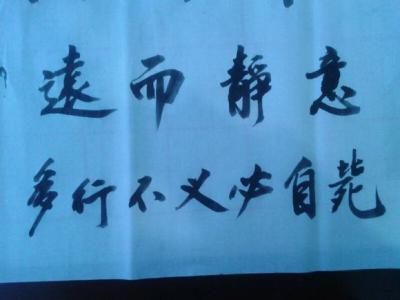 遠而靜意
多行不义必自毙